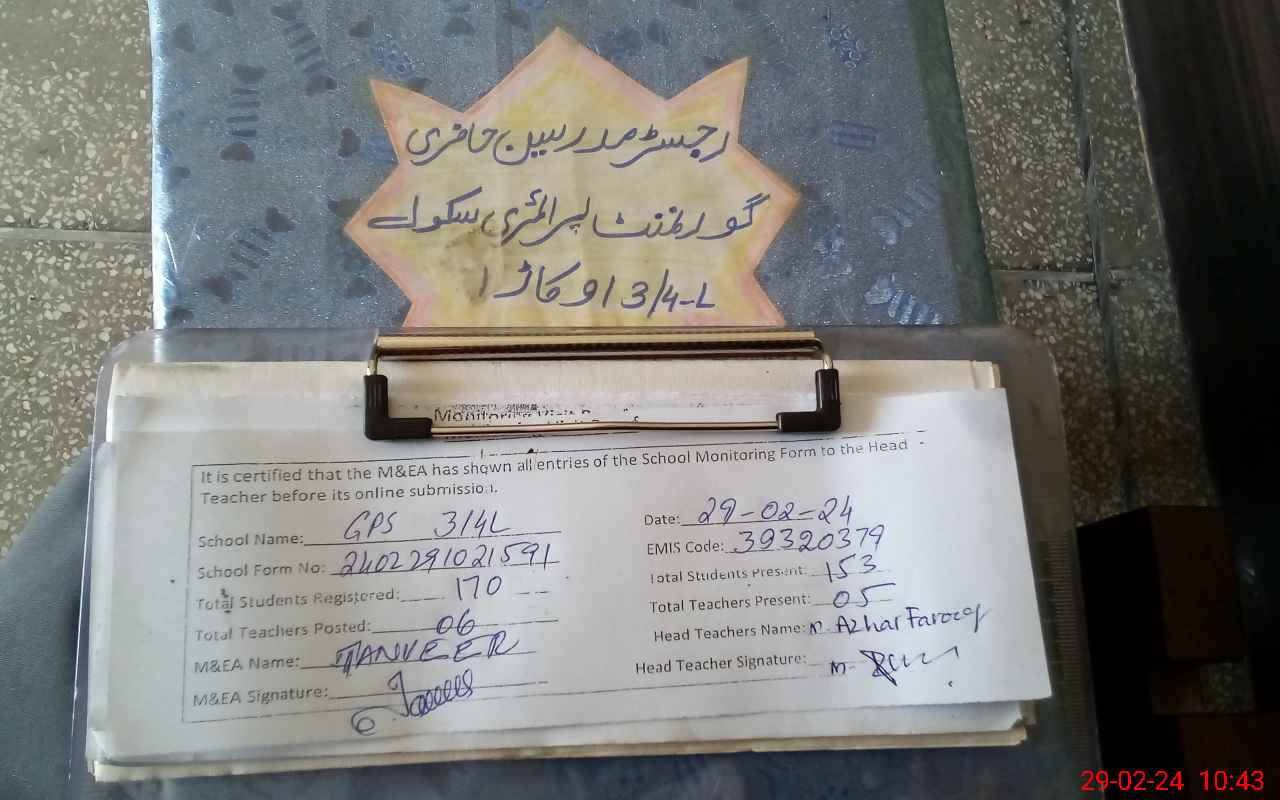 رجسٹر مدرسین حاضری
گورنمنٹ پرائمری سکول
3/4-L اوکاڑا
Monitoring Visit
It is certified that the M&EA has shown all entries of the School Monitoring Form to the Head
Teacher before its online submission.
School Name: GPS 3/4L
Date: 29-02-24
School Form No: 2402291021591
EMIS Code: 39320379
Total Students Registered: 170
Total Students Present: 153
Total Teachers Posted: 06
Total Teachers Present: 05
M&EA Name: TANVEER
Head Teachers Name: M. Azhar Farooq
M&EA Signature:
Head Teacher Signature: M.
29-02-24 10:43